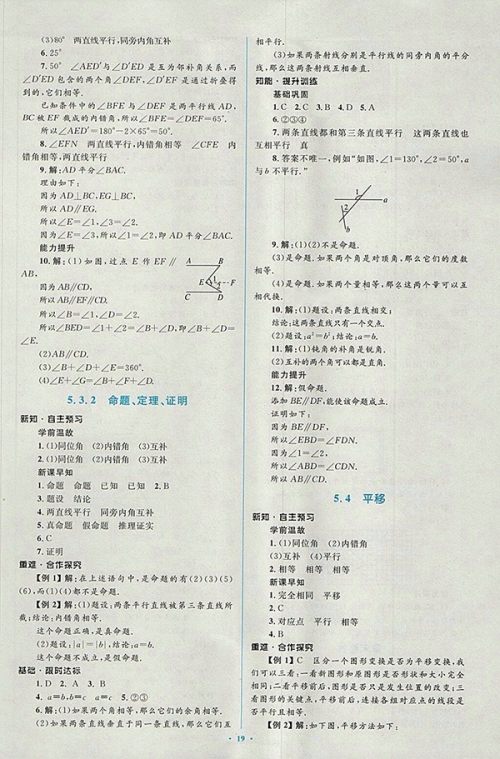 (3)80° 两直线平行,同旁内角互补
6.25°
7.50° ∠AED′与∠DED′是互为邻补角关系,而
∠D′ED包含的两个角∠DEF,∠D′EF是通过折叠得
到的,它们相等.
已知条件中的∠BFE与∠DEF是两平行线AD,
BC被EF所截得的内错角,所以∠BFE=∠DEF=65°.
所以∠AED′=180°-2×65°=50°.
8.∠EFN 两直线平行,内错角相等 ∠CFE 内
错角相等,两直线平行
9.解:AD平分∠BAC.
理由如下:
因为AD⊥BC,EG⊥BC,
所以AD∥EG.
所以∠E=∠1,∠3=∠2.
因为∠E=∠3,所以∠1=∠2,即AD平分∠BAC.
能力提升
10.解:(1)如图,过点E作EF∥
AB,
因为AB∥CD,
所以AB∥EF∥CD.
所以∠B=∠1,∠D=∠2.
所以∠BED=∠1+∠2=∠B+∠D,即∠B+∠D=
∠E.
(2)AB∥CD.
(3)∠B+∠D+∠E=360°.
(4)∠E+∠G=∠B+∠F+∠D.
A B
E 1 2 F
C D
5.3.2 命题、定理、证明
新知·自主预习
学前温故
1.(1)同位角 (2)内错角 (3)互补
2.(1)同位角 (2)内错角 (3)互补
新课早知
1.命题 命题 已知 已知 2.B
3.题设 结论
4.两直线平行 同旁内角互补
5.真命题 假命题 推理证实
6.C
7.证明
重难·合作探究
【例1】解:在上述语句中,是命题的有(2)(3)(5)
(6),而(1)(4)都不是命题.
【例2】解:(1)题设:两条平行直线被第三条直线所
截;结论:内错角相等.
这个命题正确,是真命题.
(2)题设:|a|=|b|;结论:a=b.
这个命题不成立,是假命题.
基础·限时达标
1.D 2.A 3.B
4.a=b,b=c a=c 5.②③
6.解:(1)如果两个角相等,那么它们的余角相等.
(2)如果两条直线垂直于同一条直线,那么它们互
相平行.
(3)如果两条射线分别是平行线的同旁内角的平分
线,那么这两条射线互相垂直.
知能·提升训练
基础巩固
1.C 2.C 3.B 4.D 5.A
6.②③④
7.两条直线都和第三条直线平行 这两条直线也
互相平行 真
8.答案不唯一,例如“如图,∠1=130°,∠2=50°,a
与b不平行.”
1 a
2
b
9.解:(1)(2)不是命题.
(3)是命题.如果两个角是对顶角,那么它们的度数
相等.
(4)是命题.如果两个量相等,那么这两个量可以互
相代换.
10.解:(1)题设:两条直线相交;
结论:这两条直线只有一个交点.
(2)题设:a²=b²;结论:a=b.
11.解:(1)钝角的补角是锐角.
(2)互补的两个角可以都是直角.
能力提升
12.解:假命题.
添加BE∥DF,能使该命题成立.
证明如下:
因为BE∥DF,
所以∠EBD=∠FDN.
因为∠1=∠2,
所以∠ABD=∠CDN.
所以AB∥CD.
5.4 平移
新知·自主预习
学前温故
1.(1)同位角 (2)内错角
(3)互补 (4)平行
2.相等 相等 相等
新课早知
1.完全相同 平移
2.C
3.对应点 平行 相等
4.B
重难·合作探究
【例1】C 区分一个图形变换是否为平移变换,我
们可以三看:一看新图形和原图形的形状、大小是否完
全相同;二看平移前后,图形是否只是发生位置的改变,
方向不变;三看平移前后,连接各组对应点的线段是
否平行且相等.
【例2】解:如下图,平移方法如下:
19